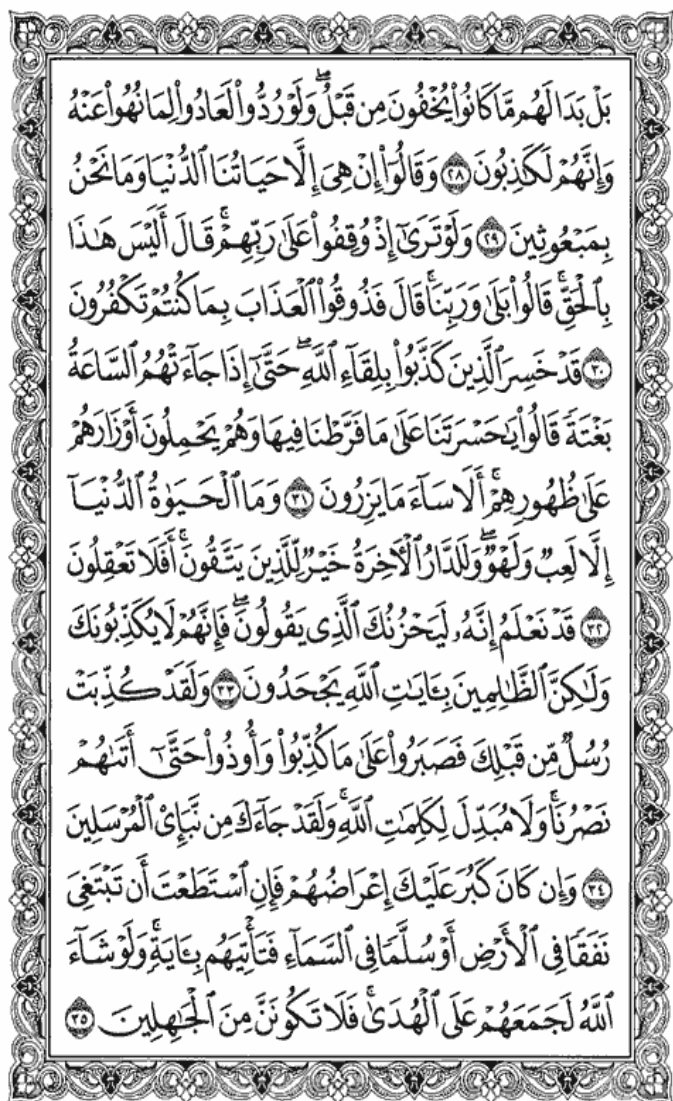 بَلْ بَدَا لَهُم مَّا كَانُوا۟ يُخْفُونَ مِن قَبْلُ ۖ وَلَوْ رُدُّوا۟ لَعَادُوا۟ لِمَا نُهُوا۟ عَنْهُ
وَإِنَّهُمْ لَكَـٰذِبُونَ ٢٨ وَقَالُوٓا۟ إِنْ هِىَ إِلَّا حَيَاتُنَا ٱلدُّنْيَا وَمَا نَحْنُ
بِمَبْعُوثِينَ ٢٩ وَلَوْ تَرَىٰٓ إِذْ وُقِفُوا۟ عَلَىٰ رَبِّهِمْ ۚ قَالَ أَلَيْسَ هَـٰذَا
بِٱلْحَقِّ ۚ قَالُوا۟ بَلَىٰ وَرَبِّنَا ۚ قَالَ فَذُوقُوا۟ ٱلْعَذَابَ بِمَا كُنتُمْ تَكْفُرُونَ
٣٠ قَدْ خَسِرَ ٱلَّذِينَ كَذَّبُوا۟ بِلِقَآءِ ٱللَّهِ ۖ حَتَّىٰٓ إِذَا جَآءَتْهُمُ ٱلسَّاعَةُ
بَغْتَةً قَالُوا۟ يَـٰحَسْرَتَنَا عَلَىٰ مَا فَرَّطْنَا فِيهَا وَهُمْ يَحْمِلُونَ أَوْزَارَهُمْ
عَلَىٰ ظُهُورِهِمْ ۚ أَلَا سَآءَ مَا يَزِرُونَ ٣١ وَمَا ٱلْحَيَوٰةُ ٱلدُّنْيَآ
إِلَّا لَعِبٌ وَلَهْوٌ ۖ وَلَلدَّارُ ٱلْـَٔاخِرَةُ خَيْرٌ لِّلَّذِينَ يَتَّقُونَ ۗ أَفَلَا تَعْقِلُونَ
٣٢ قَدْ نَعْلَمُ إِنَّهُۥ لَيَحْزُنُكَ ٱلَّذِى يَقُولُونَ ۖ فَإِنَّهُمْ لَا يُكَذِّبُونَكَ
وَلَـٰكِنَّ ٱلظَّـٰلِمِينَ بِـَٔايَـٰتِ ٱللَّهِ يَجْحَدُونَ ٣٣ وَلَقَدْ كُذِّبَتْ
رُسُلٌ مِّن قَبْلِكَ فَصَبَرُوا۟ عَلَىٰ مَا كُذِّبُوا۟ وَأُوذُوا۟ حَتَّىٰٓ أَتَىٰهُمْ
نَصْرُنَا ۚ وَلَا مُبَدِّلَ لِكَلِمَـٰتِ ٱللَّهِ ۚ وَلَقَدْ جَآءَكَ مِن نَّبَإِى۟ ٱلْمُرْسَلِينَ
٣٤ وَإِن كَانَ كَبُرَ عَلَيْكَ إِعْرَاضُهُمْ فَإِنِ ٱسْتَطَعْتَ أَن تَبْتَغِىَ
نَفَقًا فِى ٱلْأَرْضِ أَوْ سُلَّمًا فِى ٱلسَّمَآءِ فَتَأْتِيَهُم بِـَٔايَةٍ ۚ وَلَوْ شَآءَ
ٱللَّهُ لَجَمَعَهُمْ عَلَى ٱلْهُدَىٰ ۚ فَلَا تَكُونَنَّ مِنَ ٱلْجَـٰهِلِينَ ٣٥